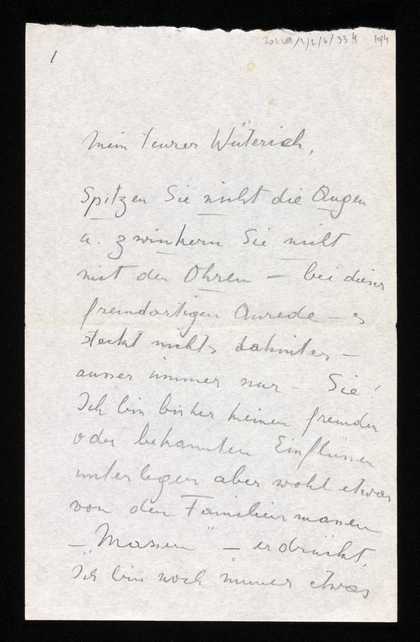 1
Mein teurer Wüterich,
Spitzen Sie nicht die Augen
u. zwinkern Sie nicht
mit den Ohren – bei dieser
fremdartigen Anrede – es
steckt nichts dahinter –
ausser immer nur – Sie!
Ich bin bisher keinen fremden
oder bekannten Einflüssen
unterlegen aber wohl etwas
von den Familienmassen
– "Massen" – erdrückt.
Ich bin noch immer etwas